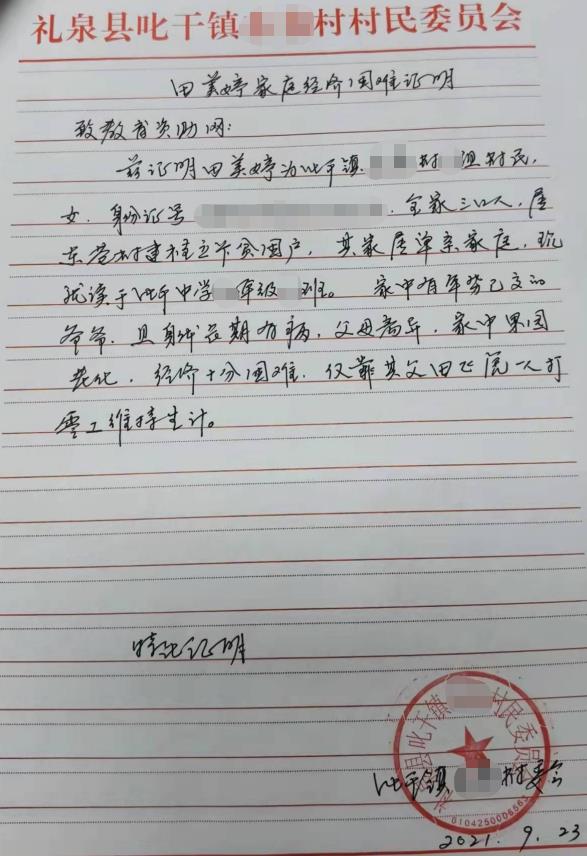 礼泉县叱干镇村村民委员会
田美婷家庭经济困难证明
致教育资助网:
兹证明田美婷为叱干镇 村 组村民,
女、身份证号 , 全家三口人, 居
村建档立卡贫困户, 其家属单亲家庭, 现
就读于叱干中学 年级 班。家中有年势已交的
爷爷, 且身体长期有病, 父母离异, 家中果园
老化, 经济十分困难, 仅靠其父田飞 一人打
零工维持生计。
特此证明
礼泉县叱干镇 村民委员会
叱干镇 村委会
6104250006563
2021. 9. 23